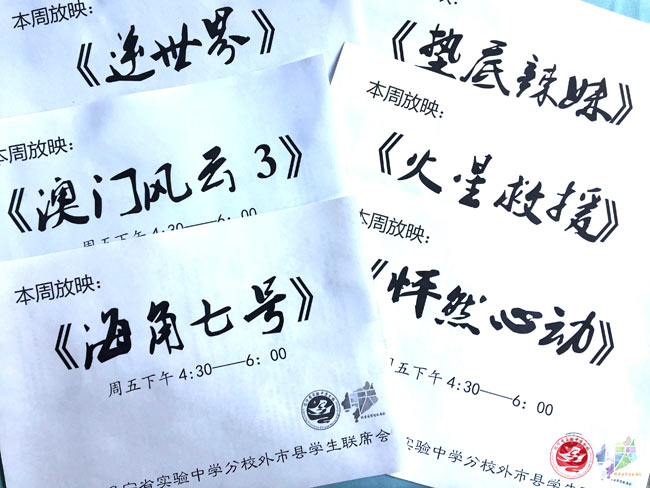 本周放映：
《逆世界》
本周放映：
《澳门风云3》
周五下午4:30——6：00
本周放映：
《海角七号》
周五下午4:30——6：00
省实验中学分校外市县学生联席会
《垫底辣妹》
本周放映：
《火星救援》
本周放映：
《怦然心动》
周五下午4:30——6：00
实验中学分校外市县学生联席会